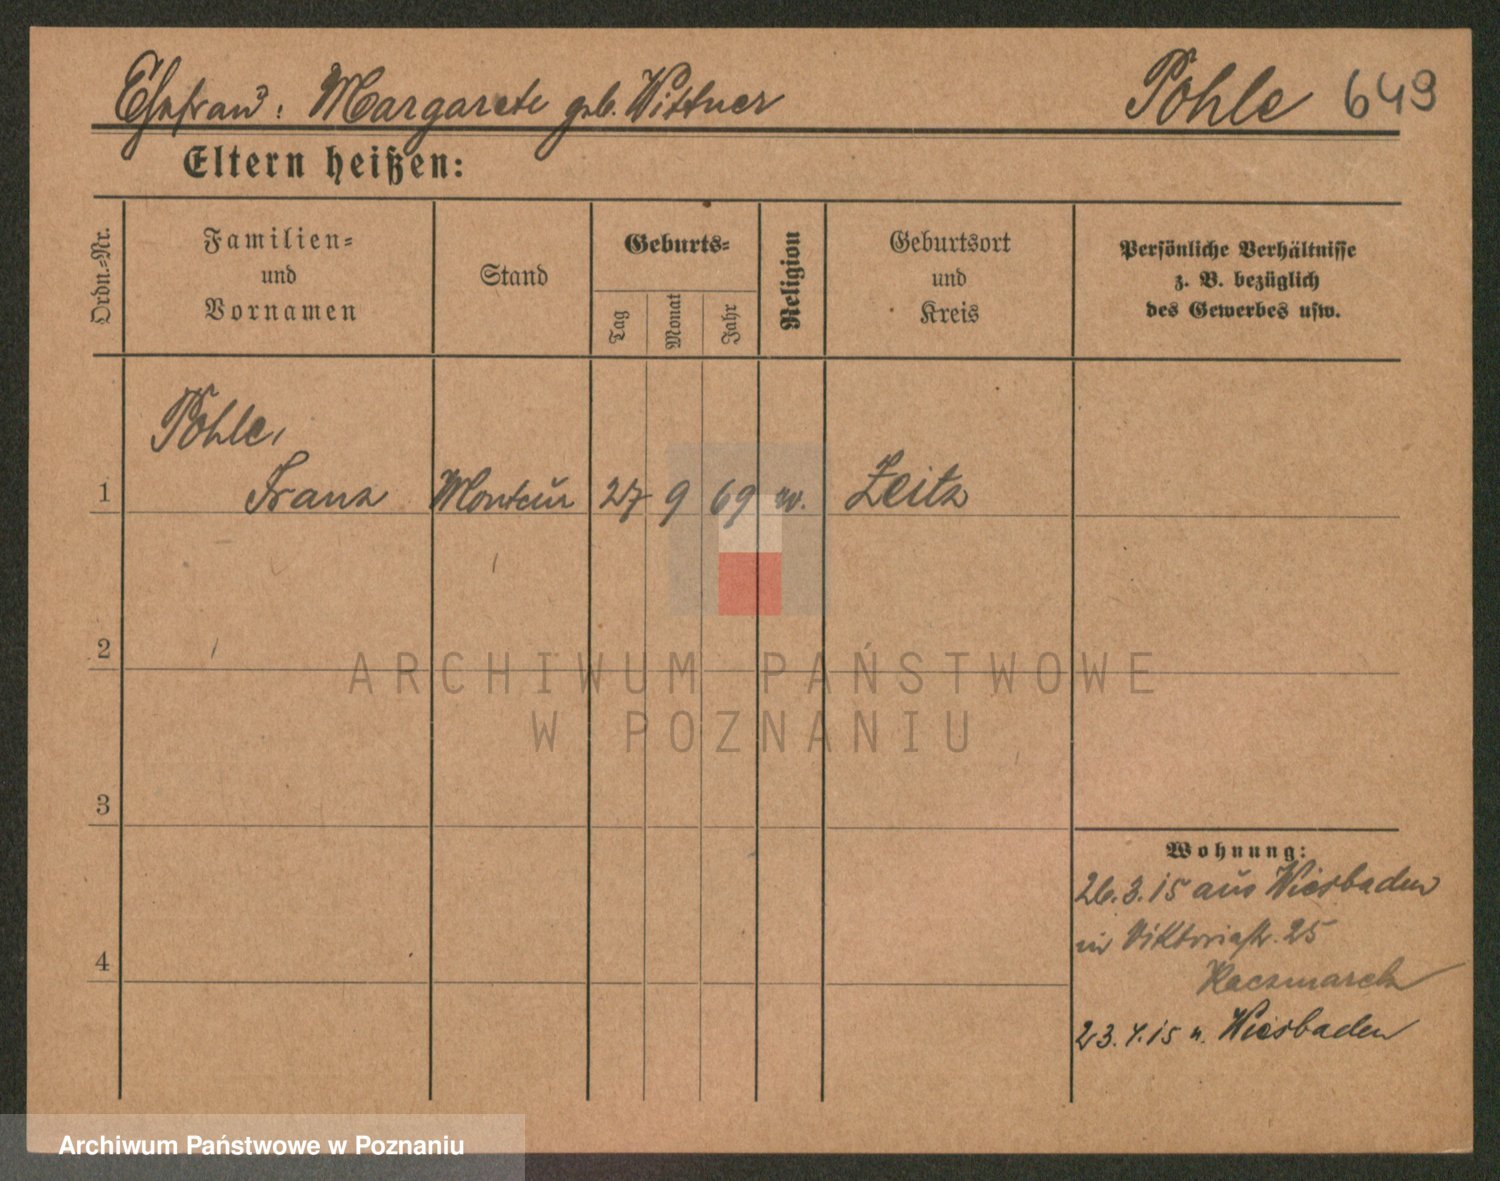 Ehefrau: Margarete geb. Wittner Pohle 649
Eltern heißen:
Ordn.-Nr.
Familien-
und
Vornamen
Stand
Geburts-
Tag
Monat
Jahr
Religion
Geburtsort
und
Kreis
Persönliche Verhältnisse
z. B. bezüglich
des Gewerbes usw.
Pohle,
1 Franz Monteur 27 9 69 Zeitz
2
3
4
Wohnung:
26.3.15 aus Wiesbaden
in Viktoriastr. 25
Kaczmarek
23.4.15 n. Wiesbaden
ARCHIWUM PAŃSTWOWE
W POZNANIU
Archiwum Państwowe w Poznaniu